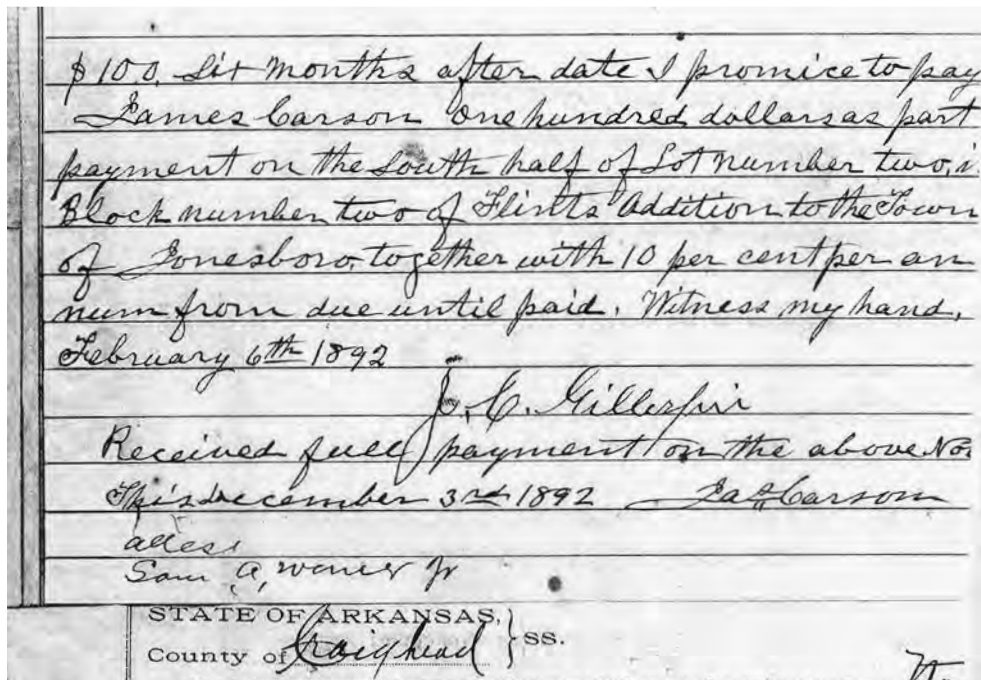 $100. Six months after date I promice to pay
James Carson one hundred dollars as part
payment on the South half of Lot number two, i
Block number two of Flints Addition to the Town
of Jonesboro, together with 10 per cent per an
num from due until paid. Witness my hand,
February 6th 1892
J. C. Gillespie
Received full payment on the above No
This December 3rd 1892 Jas Carson
attest
Sam A,
Jr
STATE OF ARKANSAS, } ss.
County of Craighead